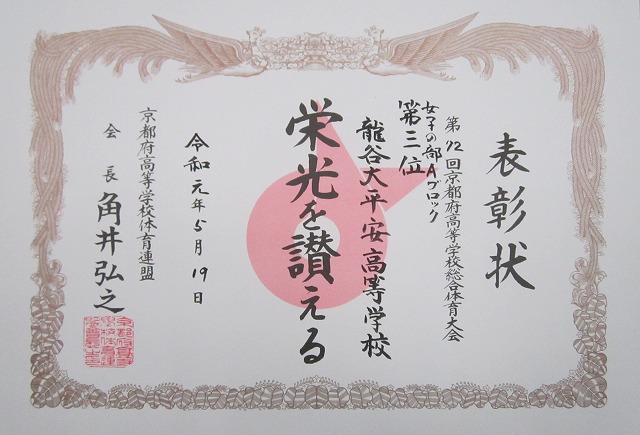 表彰状
第72回京都府高等学校総合体育大会
女子の部Aブロック
第三位
龍谷大平安高等学校
栄光を讃える
令和元年5月19日
京都府高等学校体育連盟
会長 角井弘之